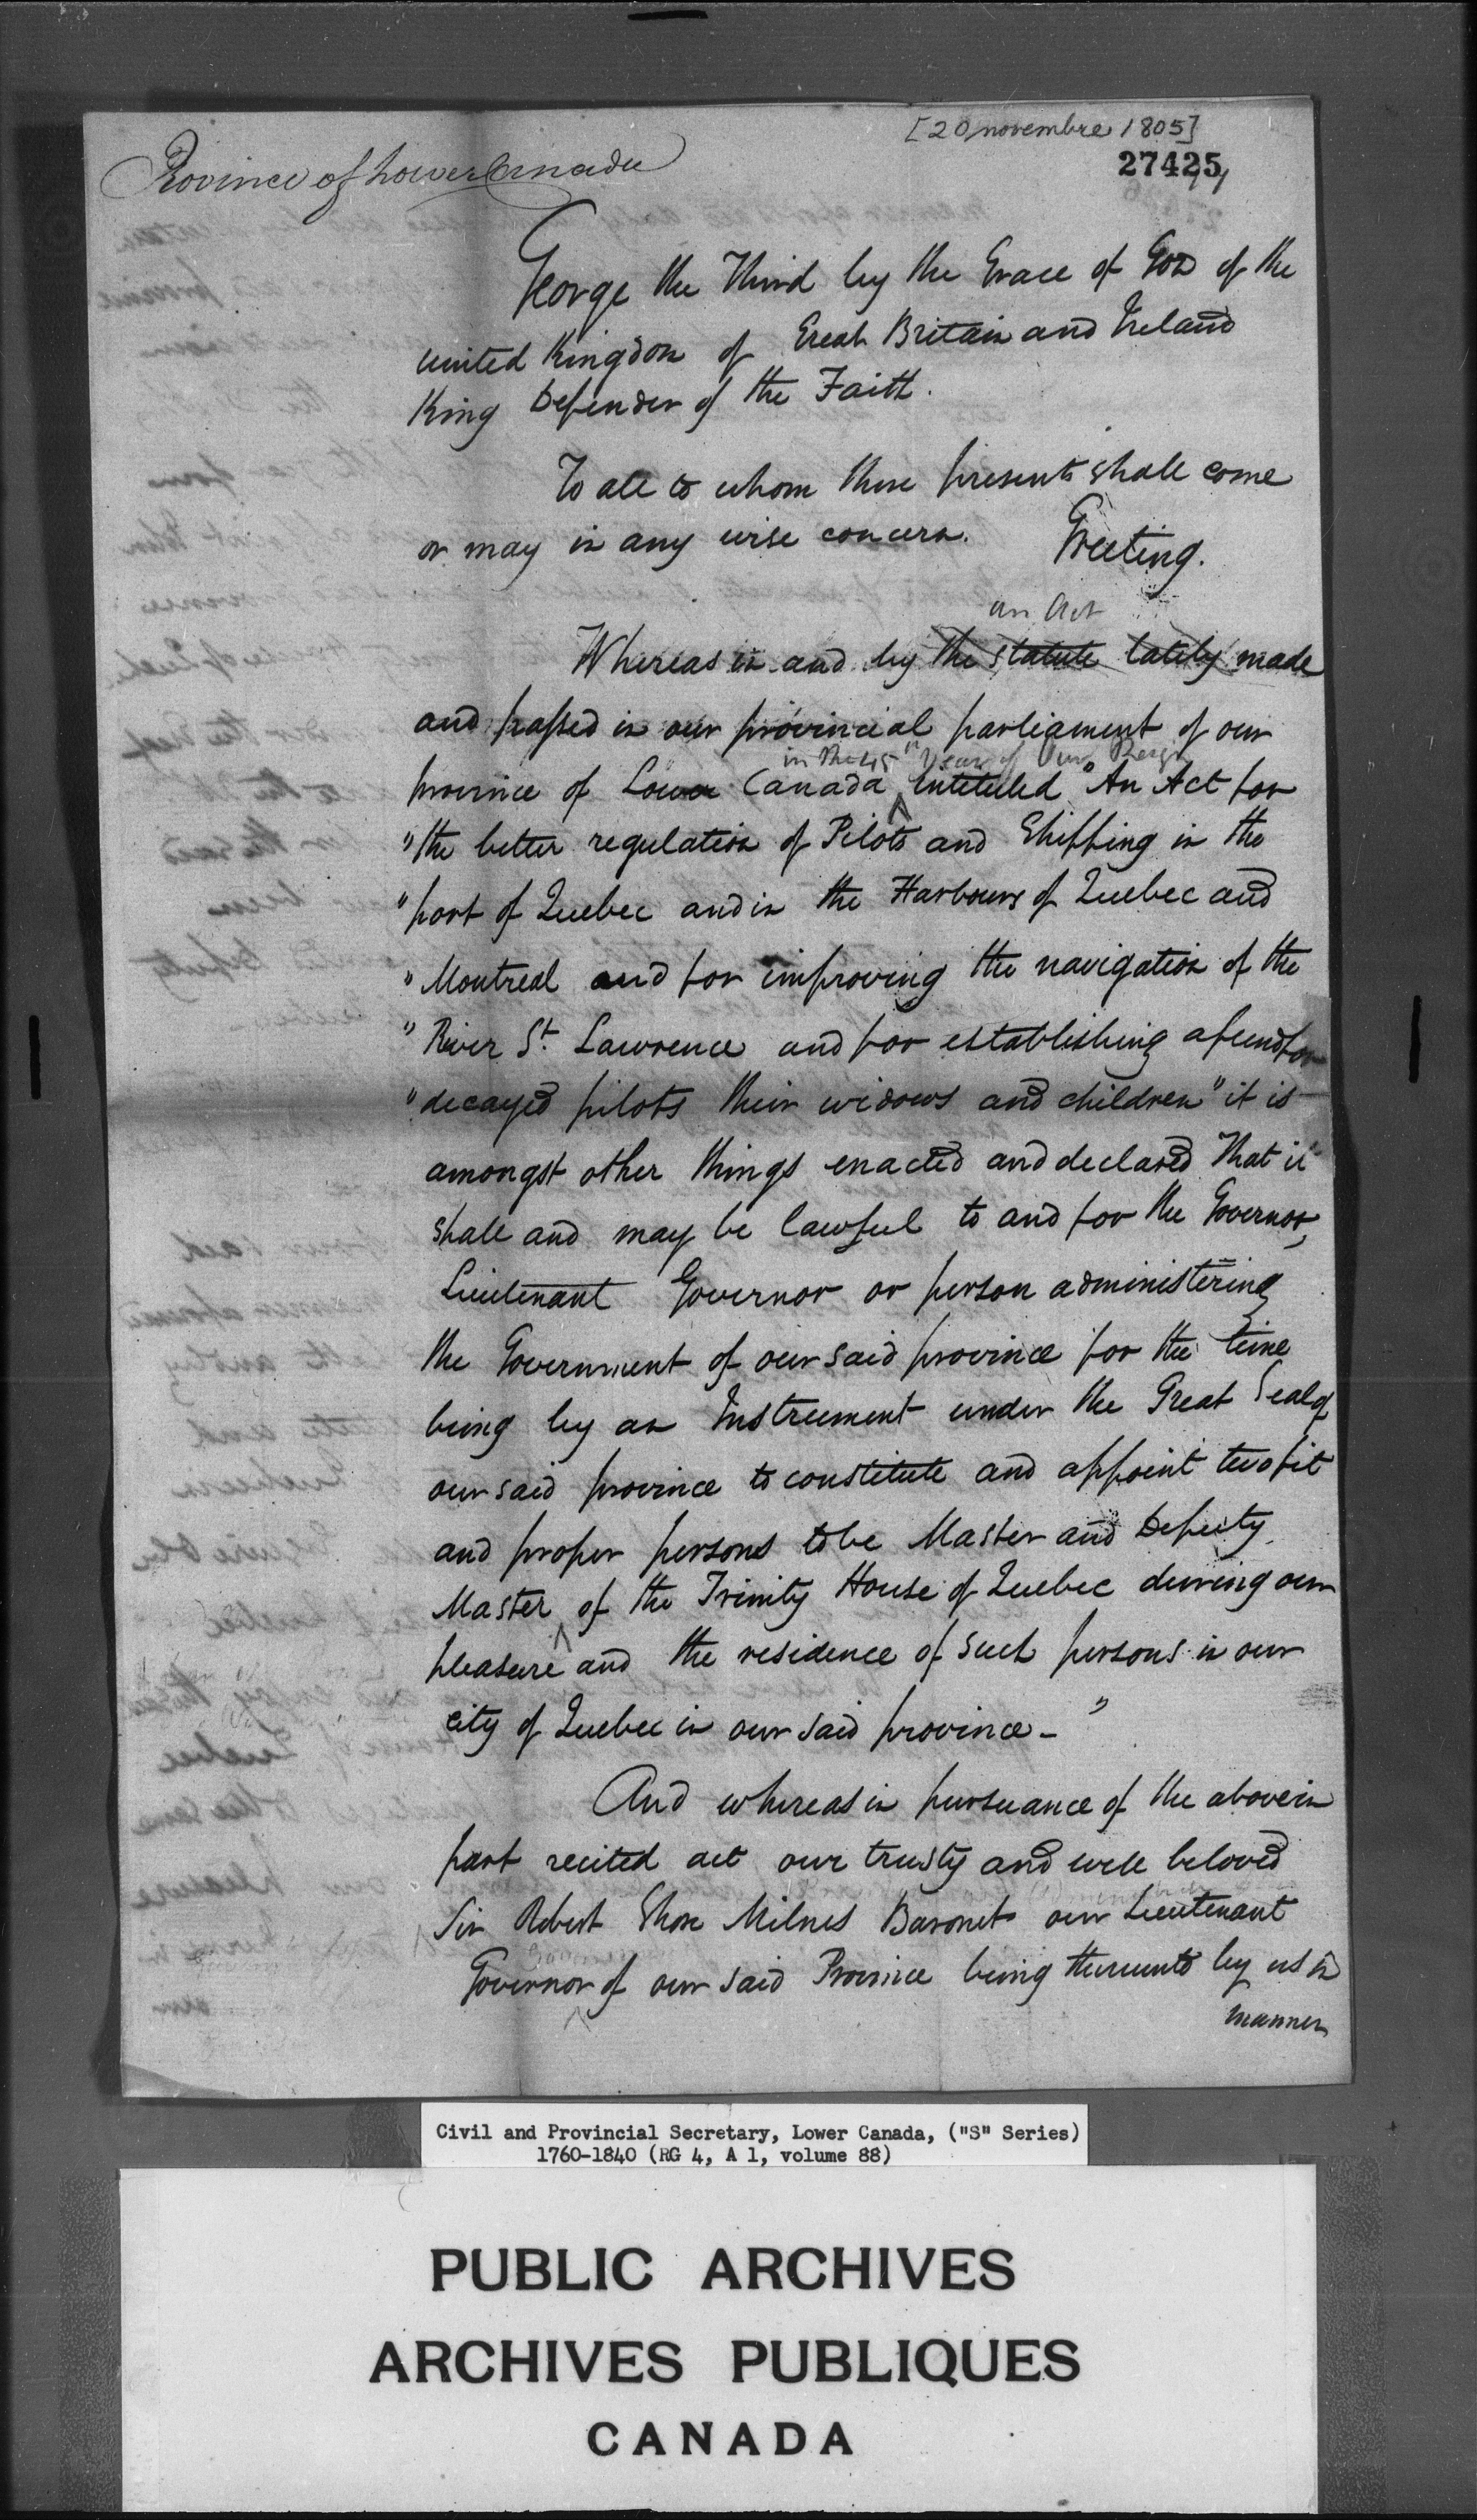 [20 novembre 1805]
27425
Province of Lower Canada
George the Third by the Grace of God of the
united Kingdom of Great Britain and Ireland
King Defender of the Faith.
To all to whom these presents shall come
or may in any wise concern. Greeting.
an Act
Whereas in and by the statute lately made
and passed in our provincial parliament of our
in the 45th Year of Our Reign
province of Lower Canada ^ Intituled "An Act for
"the better regulation of Pilots and Shipping in the
"port of Quebec and in the Harbours of Quebec and
"Montreal and for improving the navigation of the
"River St. Lawrence and for establishing a fund for
"decayed pilots their widows and children" it is
amongst other things enacted and declared That it
shall and may be lawful to and for the Governor,
Lieutenant Governor or person administering
the Government of our said province for the time
being by an Instrument under the Great Seal of
our said province to constitute and appoint two fit
and proper persons to be Master and Deputy
Master ^ of the Trinity House of Quebec during our
pleasure and the residence of such persons in our
city of Quebec in our said province - "
And whereas in pursuance of the above in
part recited act our trusty and well beloved
Sir Robert Shore Milnes Baronet our Lieutenant
Governor ^ of our said Province being thereunto by us in
manner
Civil and Provincial Secretary, Lower Canada, ("S" Series)
1760-1840 (RG 4, A 1, volume 88)
PUBLIC ARCHIVES
ARCHIVES PUBLIQUES
CANADA